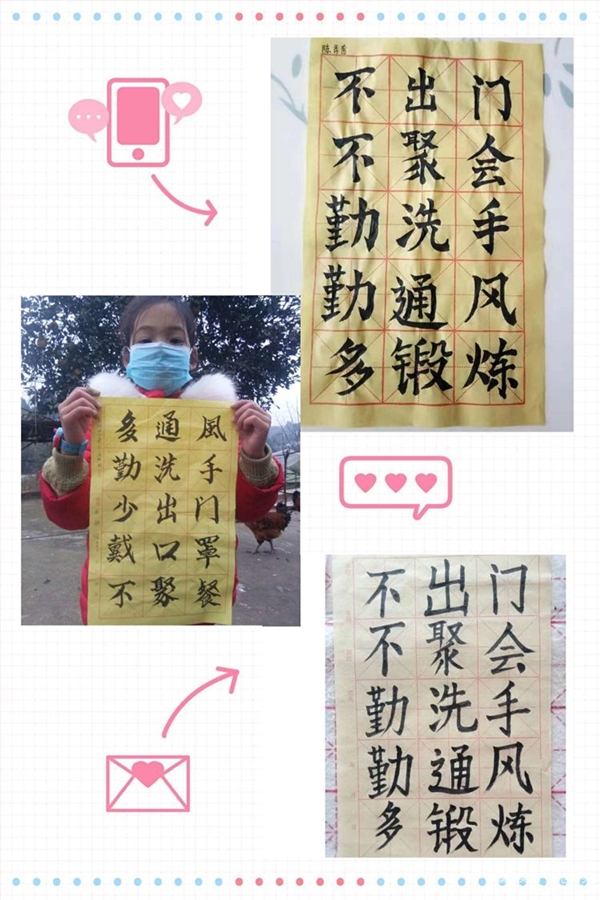 不出门
不聚会
勤洗手
勤通风
多锻炼
多通風
勤洗手
少出门
戴口罩
不聚餐
不出门
不聚会
勤洗手
勤通风
多锻炼